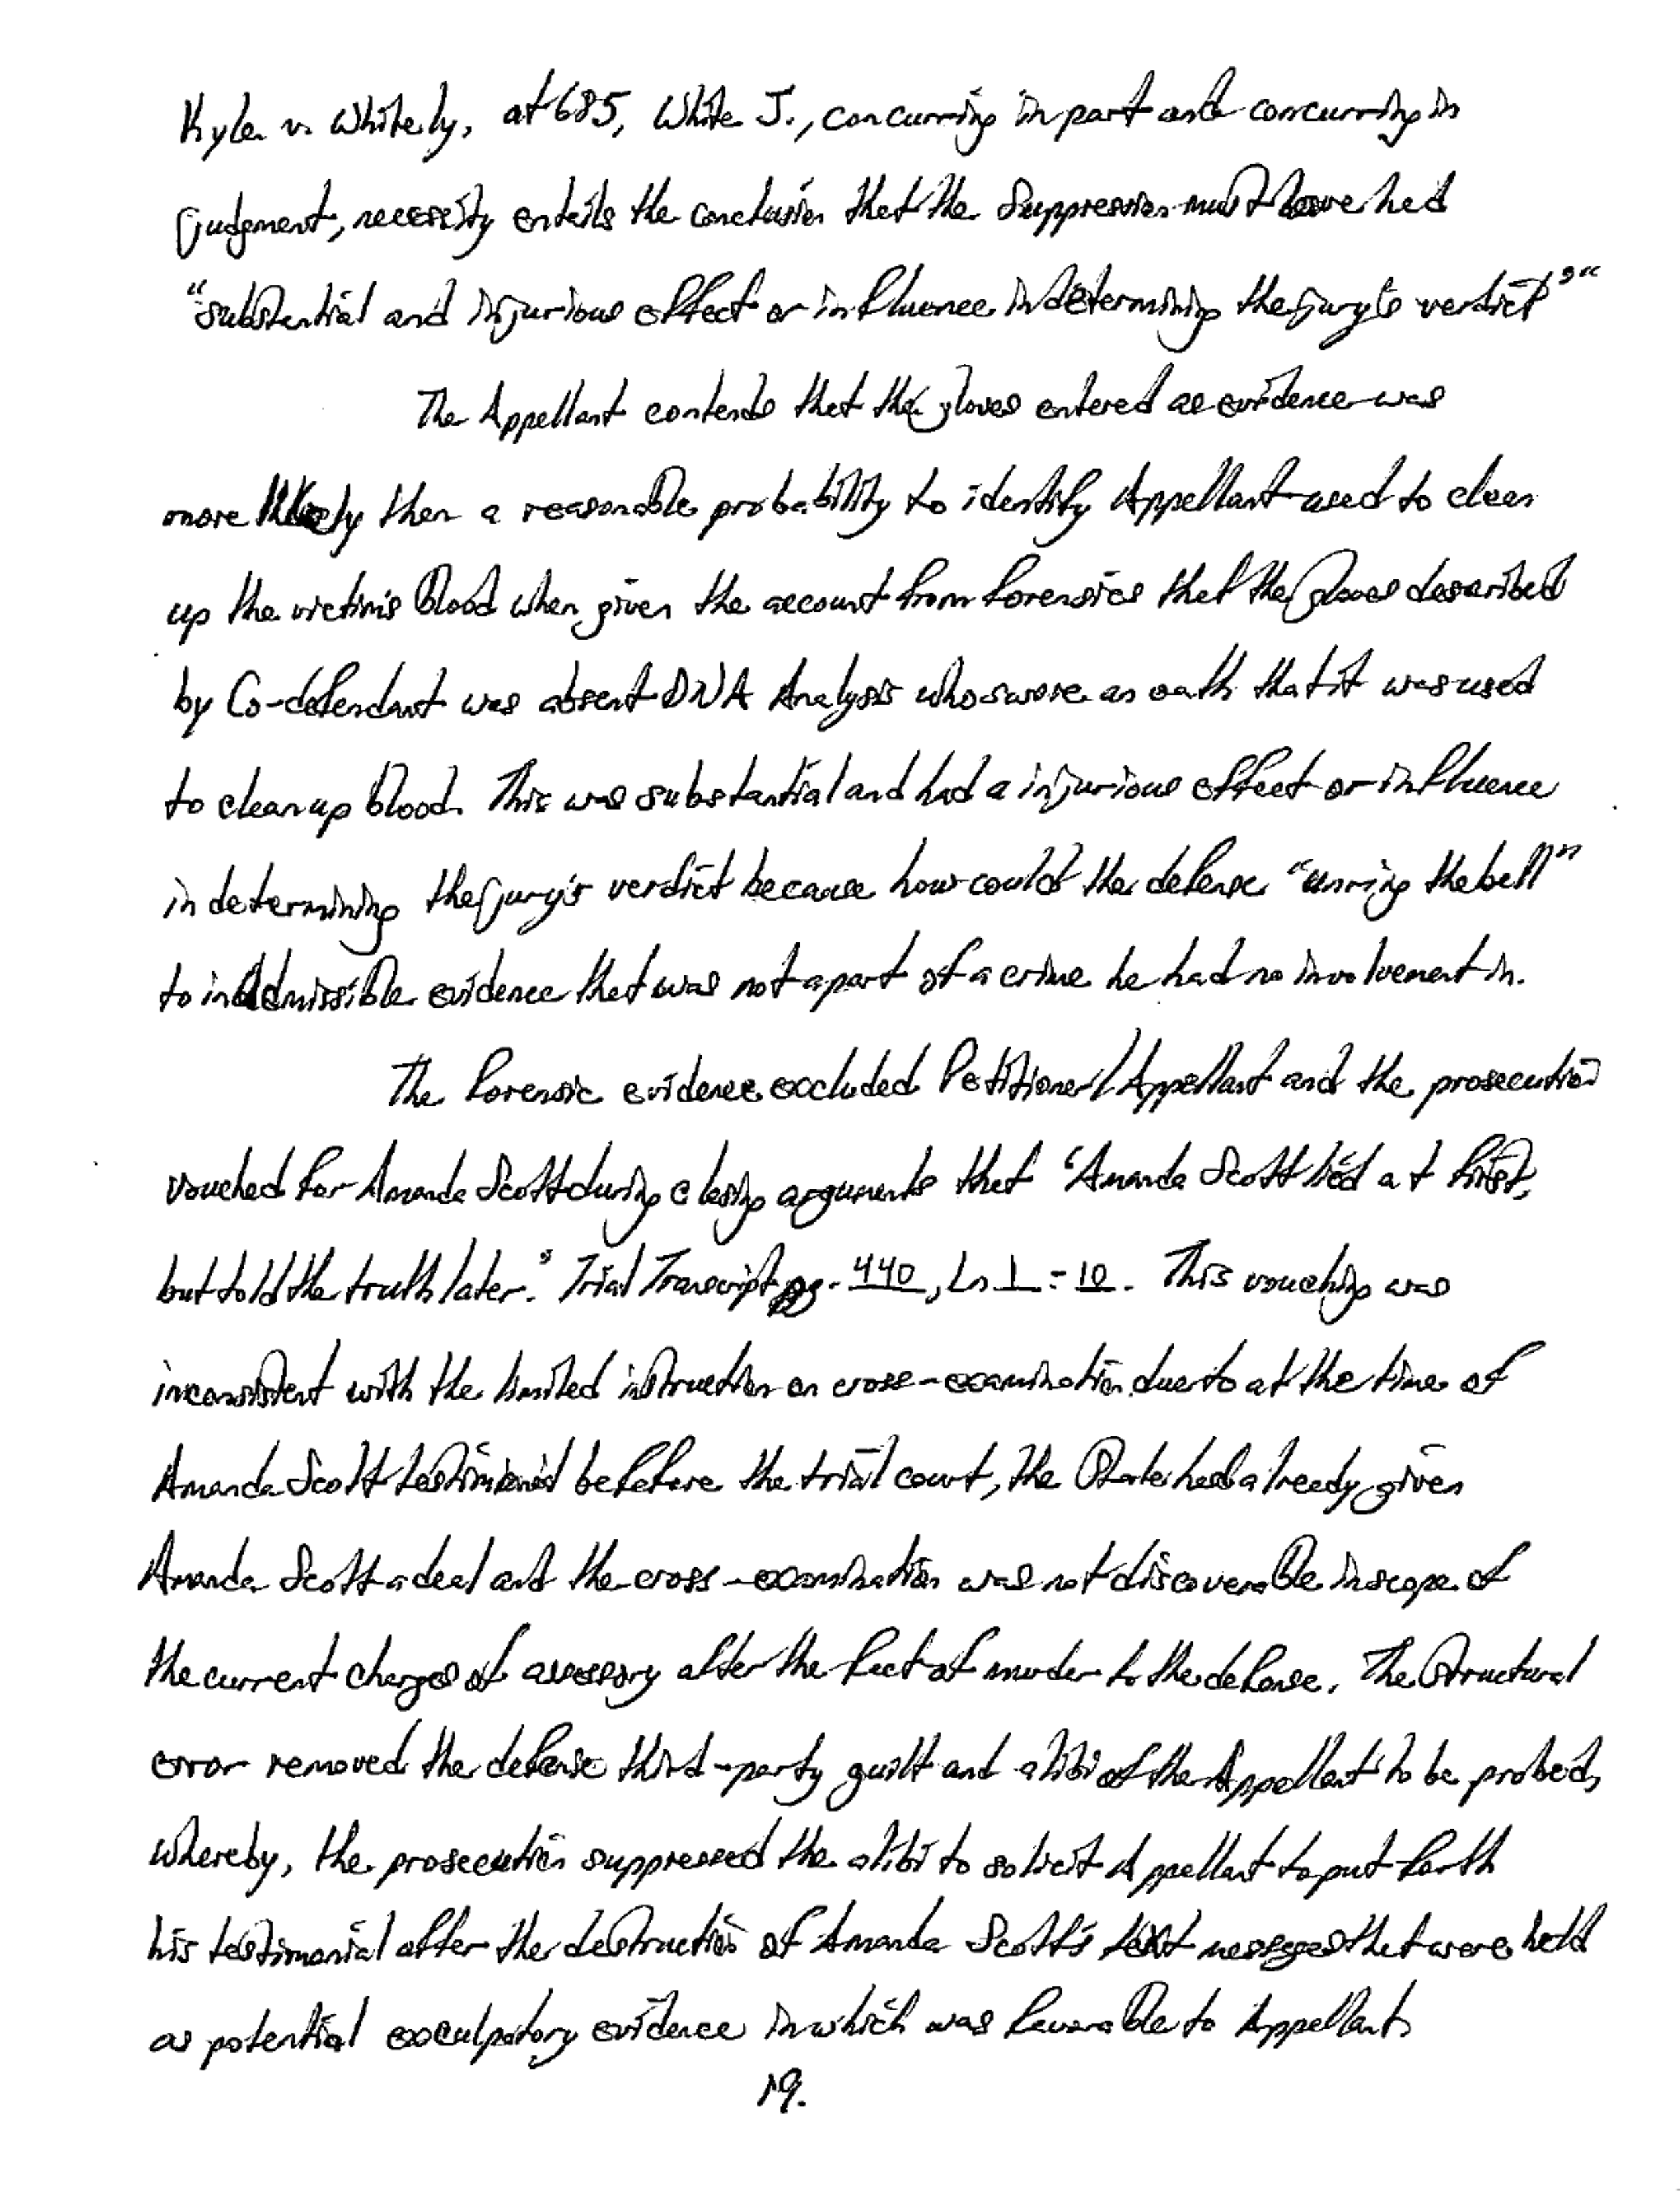 Kyle v. Whitely, at 685, White J., concurring in part and concurring in
judgment, necessity entails the conclusion that the suppression must have had
"substantial and injurious effect or influence in determining the jury's verdict'"
The Appellant contends that the gloves entered as evidence was
more likely then a reasonable probability to identify Appellant used to clean
up the victim's blood when given the account from forensics that the gloves described
by Co-defendant was absent DNA Analysis who swore an oath that it was used
to clean up blood. This was substantial and had a injurious effect or influence
in determining the jury's verdict because how could the defense "unring the bell"
to inadmissible evidence that was not apart of a crime he had no involvement in.
The forensic evidence excluded Petitioner/Appellant and the prosecution
vouched for Amanda Scott during closing arguments that "Amanda Scott lied at first,
but told the truth later." Trial Transcript pg. 440, Ln 1 - 10. This vouching was
inconsistent with the limited instruction on cross-examination due to at the time of
Amanda Scott before the trial court, the State had already given
Amanda Scott a deal and the cross-examination was not discoverable in scope of
the current charges of accessory after the fact of murder to the defense. The structural
error removed the defense third-party guilt and alibi of the Appellant to be probed,
whereby, the prosecution suppressed the alibi to solicit Appellant to put forth
his testimonial after the destruction of Amanda Scott's text messages that were held
as potential exculpatory evidence in which was favorable to Appellant.
19.